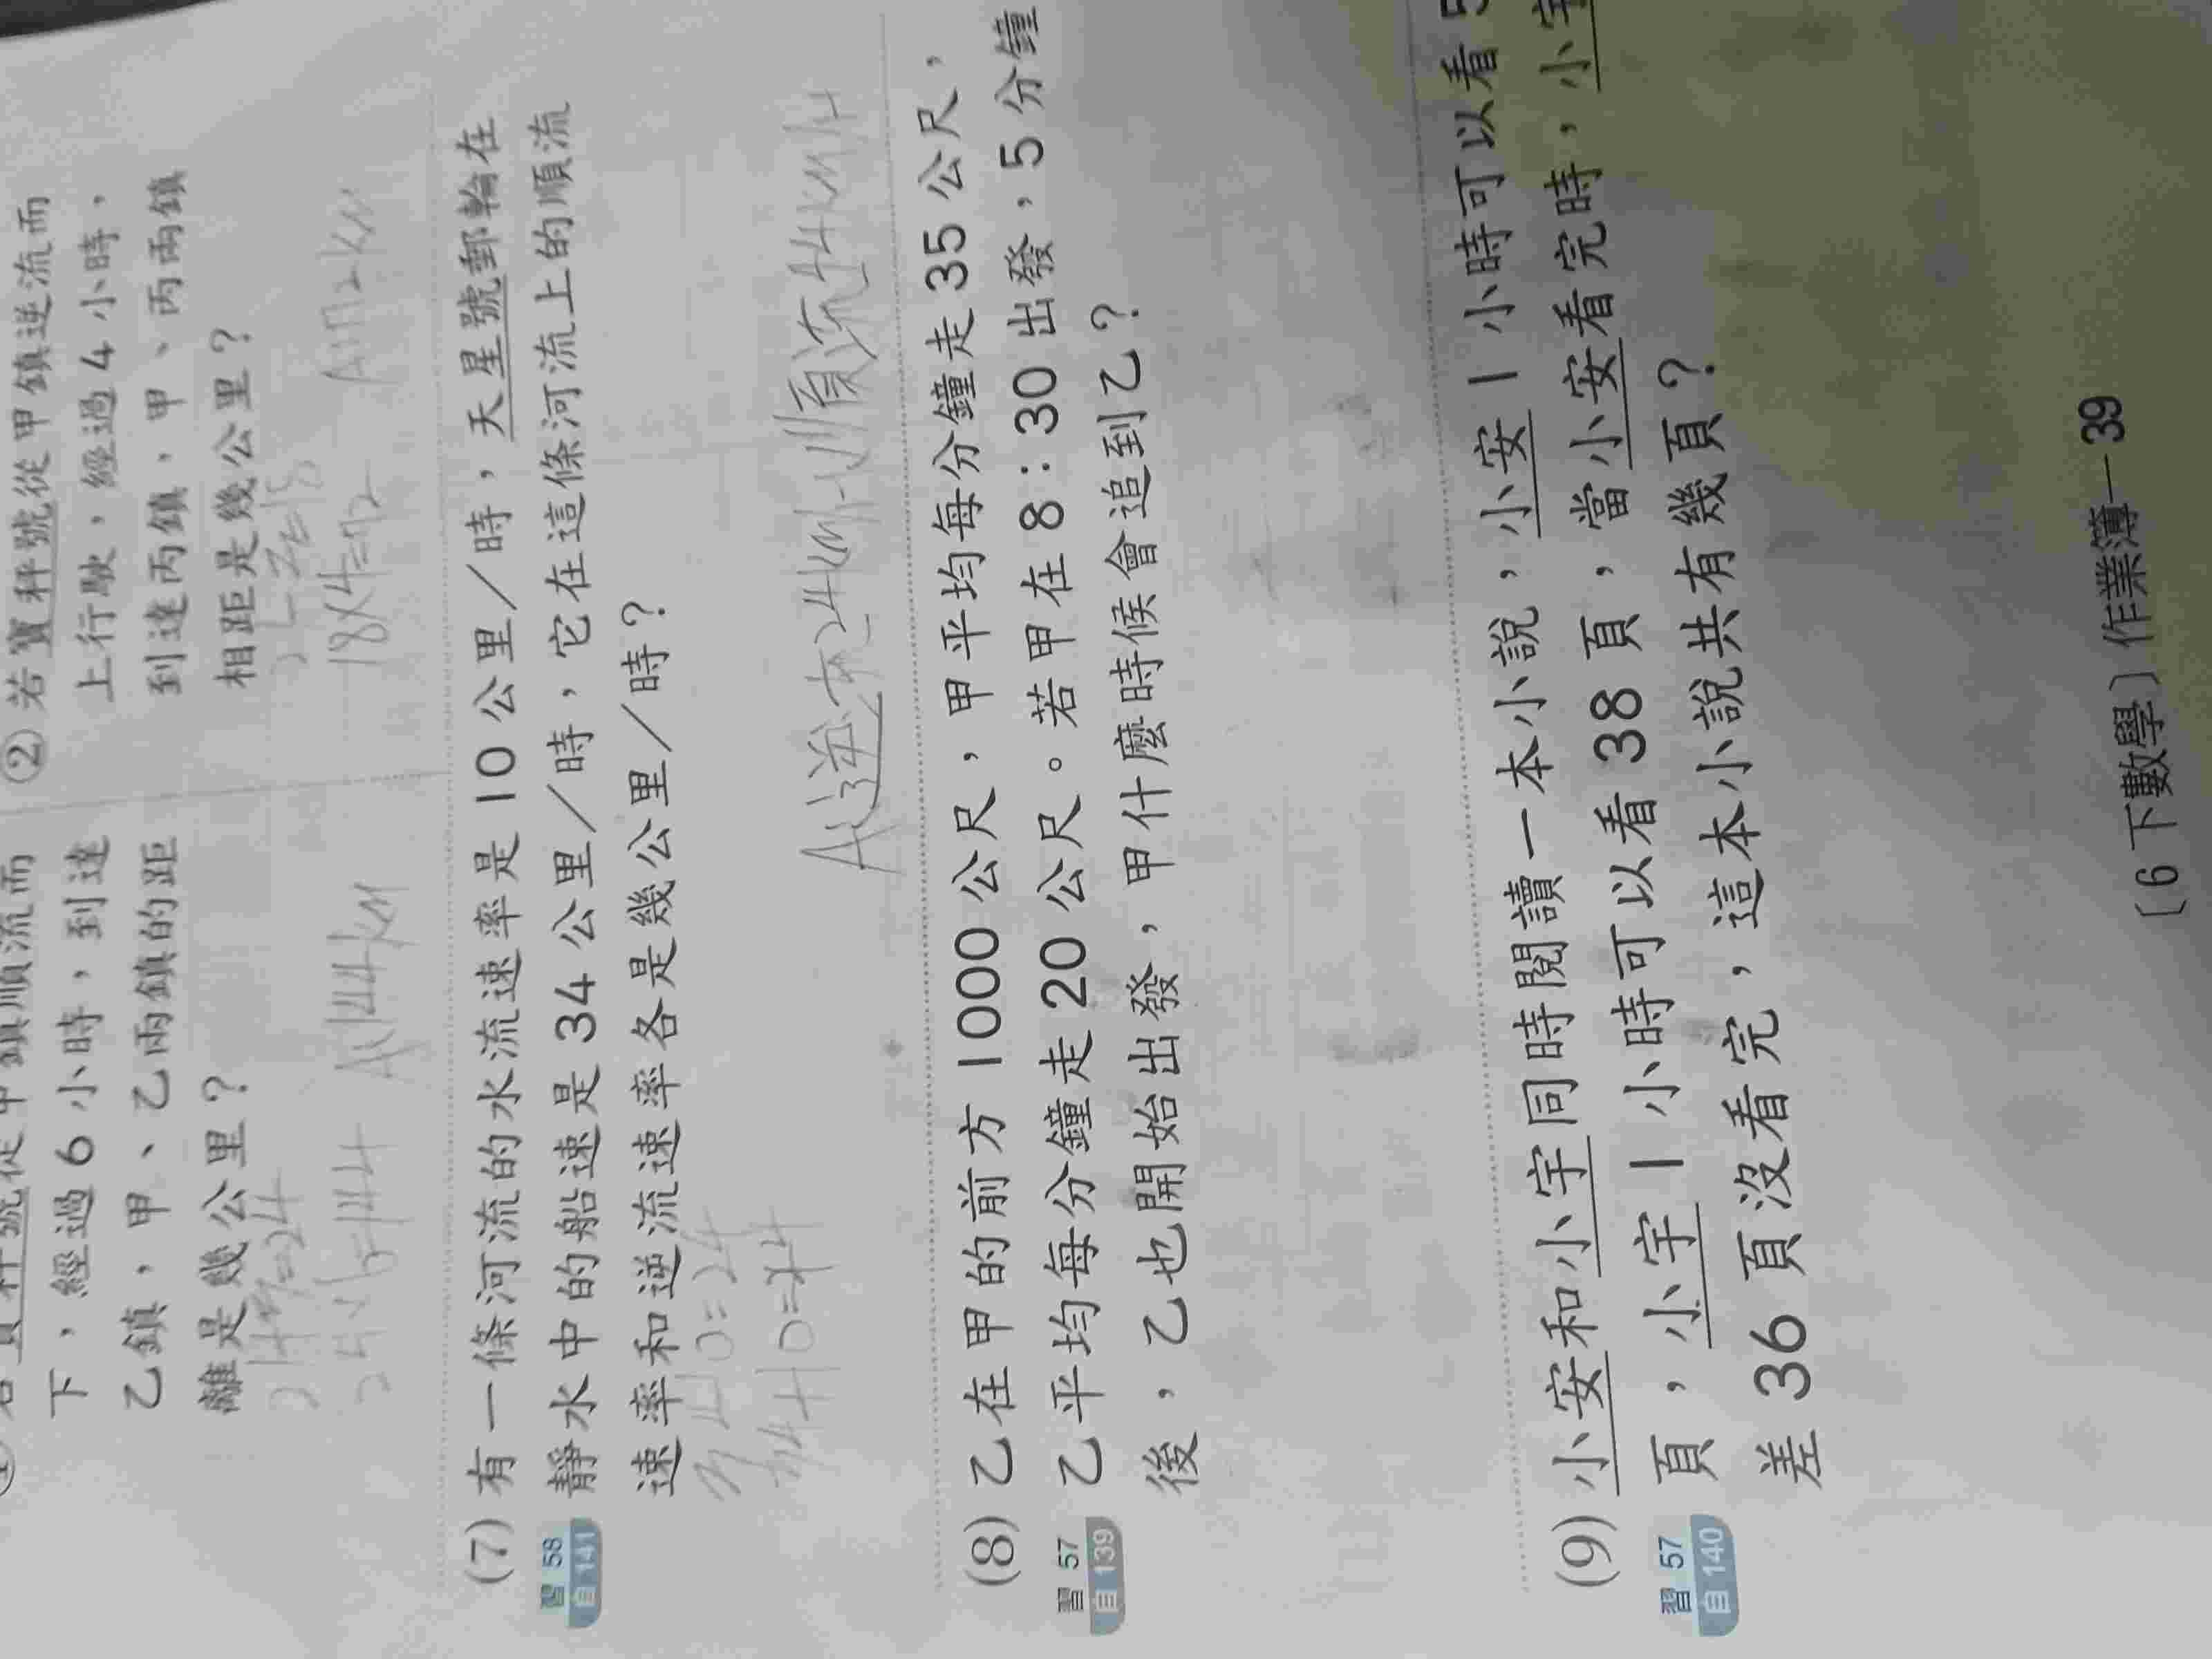 下，經過 6 小時，到達
乙鎮，甲、乙兩鎮的距
離是幾公里？
21+3=24
24×6=144 A:144km
② 若寶秤號從甲鎮逆流而
上行駛，經過 4 小時，
到達丙鎮，甲、丙兩鎮
相距是幾公里？
18×4=72
(7) 有一條河流的水流速率是 10 公里／時，天星號郵輪在
習 58
自 141
靜水中的船速是 34 公里／時，它在這條河流上的順流
速率和逆流速率各是幾公里／時？
(8) 乙在甲的前方 1000 公尺，甲平均每分鐘走 35 公尺，
習 57
自 139
乙平均每分鐘走 20 公尺。若甲在 8：30 出發，5 分鐘
後，乙也開始出發，甲什麼時候會追到乙？
(9) 小安和小宇同時閱讀一本小說，小安 1 小時可以看 5
習 57
自 140
頁，小宇 1 小時可以看 38 頁，當小安看完時，小宇
差 36 頁沒看完，這本小說共有幾頁？
〔6 下數學〕作業簿－39